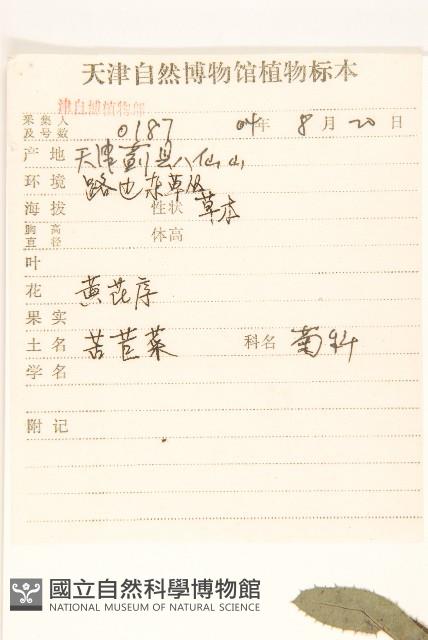 天津自然博物馆植物标本
津自博植物部
采集人
及号数 0187 04年 8月 20日
产地 天津蓟县八仙山
环境 路边杂草丛
海拔 性状 草本
胸高
直径 体高
叶
花 黄花序
果实
土名 苦苣菜 科名 菊科
学名
附记
國立自然科學博物館
NATIONAL MUSEUM OF NATURAL SCIENCE